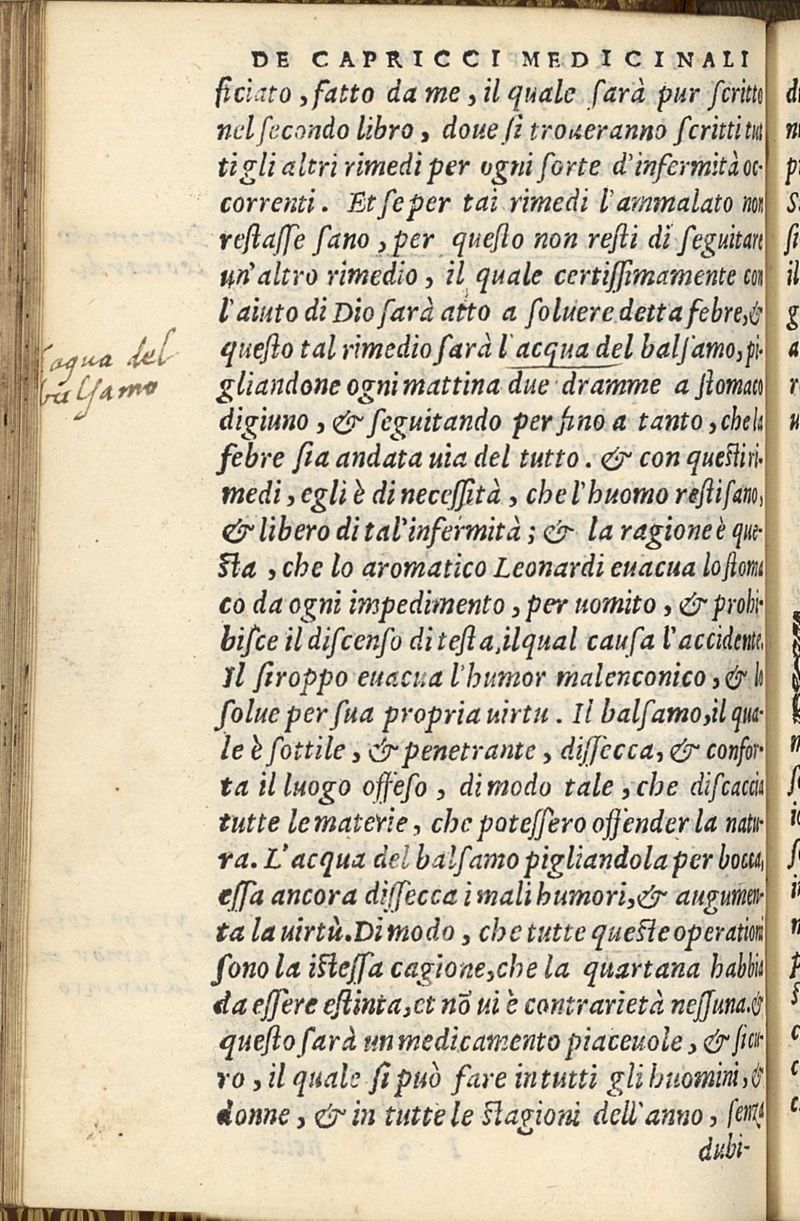 DE CAPRICCI MEDICINALI
ficiato, fatto da me, il quale ſarà pur ſcritto
nel ſecondo libro, doue ſi troueranno ſcritti tut
ti gli altri rimedi per ogni ſorte d'infermità oc-
correnti. Et ſe per tai rimedi l'ammalato non
reſtaſſe ſano, per queſto non reſti di ſeguitare
un'altro rimedio, il quale certiſſimamente con
l'aiuto di Dio ſarà atto a ſoluere detta febre, &
queſto tal rimedio ſarà l'acqua del balſamo, pi-
gliandone ogni mattina due dramme a ſtomaco
digiuno, & ſeguitando per fino a tanto, che la
febre ſia andata uia del tutto. & con queſti ri-
medi, egli è di neceſſità, che l'huomo reſti ſano,
& libero di tal'infermità; & la ragione è que-
ſta, che lo aromatico Leonardi euacua lo ſtoma
co da ogni impedimento, per uomito, & prohi-
biſce il diſcenſo di teſta, ilqual cauſa l'accidente.
Il ſiroppo euacua l'humor malenconico, & lo
ſolue per ſua propria uirtu. Il balſamo, il qua-
le è ſottile, & penetrante, diſſecca, & confor-
ta il luogo offeſo, di modo tale, che diſcaccia
tutte le materie, che poteſſero offender la natu-
ra. L'acqua del balſamo pigliandola per bocca,
eſſa ancora diſſecca i mali humori, & augumen-
ta la uirtù. Di modo, che tutte queſte operationi
ſono la iſteſſa cagione, che la quartana habbia
da eſſere eſtinta, et nõ ui è contrarietà neſſuna. &
queſto ſarà un medicamento piaceuole, & ſicu-
ro, il quale ſi può fare in tutti gli huomini, &
donne, & in tutte le ſtagioni dell'anno, ſenza
dubi-
l'aqua del
balſamo